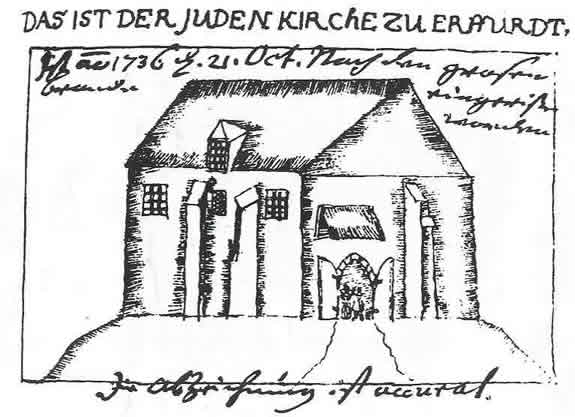 DAS IST DER JUDEN KIRCHE ZU ERFURDT,
Ist ao 1736 d. 21. Oct. Nach dem großen
brande eingerissen
worden
Die abzeichnung ist accurat.